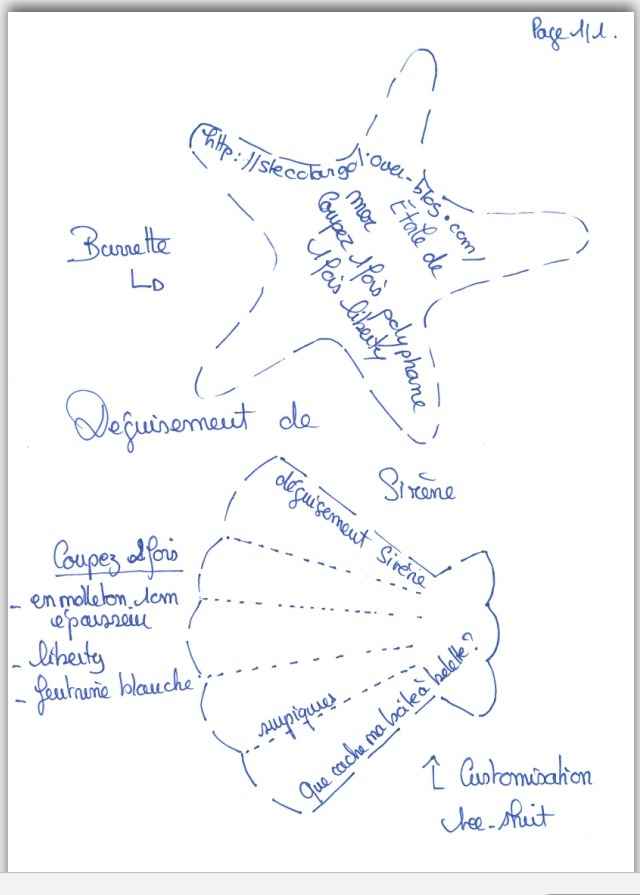 Page 1/1.
http://stecolargol.over-blog.com/
Étoile de
mer
Coupez 1 fois polyphane
1 fois liberty
Barrette
Déguisement de
Sirène
déguisement Sirène
Coupez 2 fois
- en molleton 1cm
épaisseur
- liberty
- feutrine blanche
surpiqures
Que cache ma boîte à belette?
Customisation
tee-shirt